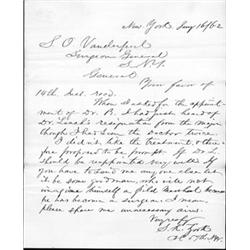 New York Aug 16/62
S O Vanderpoel
Surgeon General
S N Y
General
Your favor of
14th inst. recd.
When I asked for the appoint-
ment of Dr. B. I had just heard of
Dr. resignation from the Major
though I had seen the Doctor twice.
I didn't like the treatment, & there-
fore proposed to be prompt. If Dr
should be reappointed very well. If
you have to send me any one else let
it be some good man, who will not
imagine himself a Field Marshal because
he has become a Surgeon. I mean,
please spare me unnecessary airs.
Yours
S. H.
Col 17th